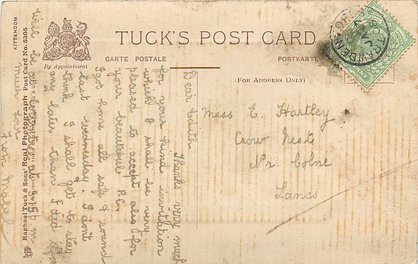 TUCK'S POST CARD
CARTE POSTALE
POSTKARTE
By Appointment
(FOR ADDRESS ONLY)
Miss E. Hartley
Crow Nest
Nr. Colne
Lancs
Dear Edith
Thanks very much
for your kind invitation
which I shall be very
pleased to accept also for
your beautiful P.C.
I got home all safe & sound
last Wednesday. I don't
think I shall get to stay
any later than I did
Will be at
much love
From Mabel
Raphael Tuck & Sons' Real Photograph Post Card No. 5205
KITTENDOM